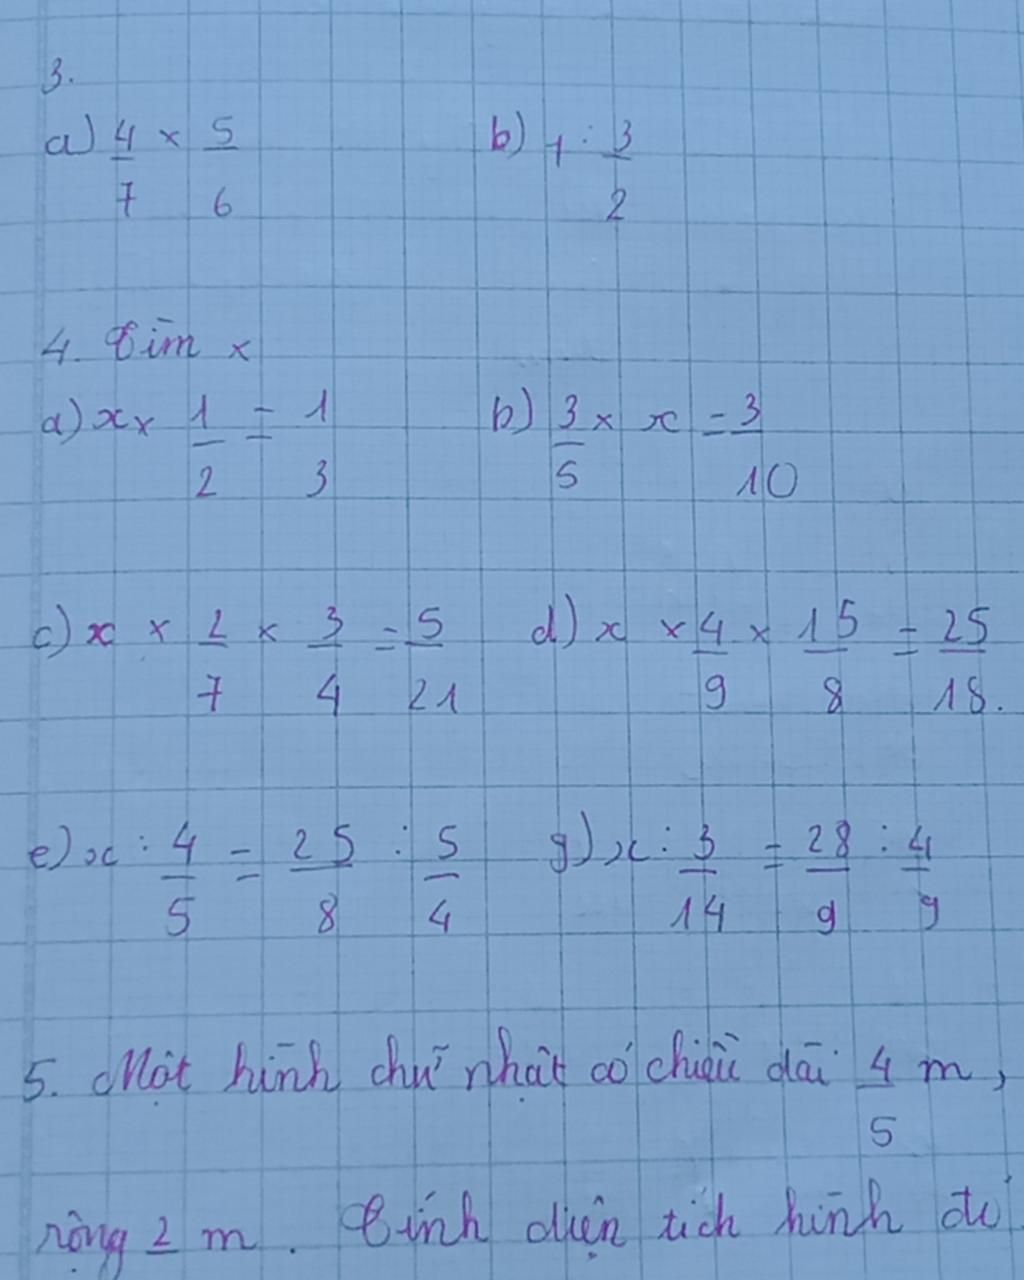 3.
a) 4/7 × 5/6    b) 1 : 3/2
4. Tìm x
a) x × 1/2 = 1/3    b) 3/5 × x = 3/10
c) x × 2/7 × 3/4 = 5/21    d) x × 4/9 × 15/8 = 25/18.
e) x : 4/5 = 25/8 : 5/4    g) x : 3/14 = 28/9 : 4/9
5. Một hình chữ nhật có chiều dài 4/5 m,
rộng 2 m. Tính diện tích hình đó